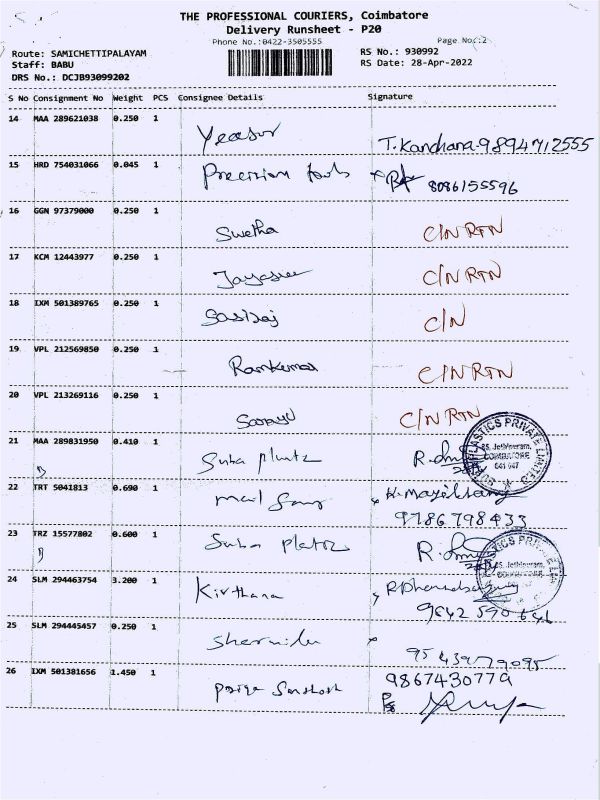 THE PROFESSIONAL COURIERS, Coimbatore
Delivery Runsheet - P20
Phone No.:0422-3505555
Page No.:2
Route: SAMICHETTIPALAYAM
Staff: BABU
DRS No.: DCJB93099202
RS No.: 930992
RS Date: 28-Apr-2022
S No Consignment No Weight PCS Consignee Details Signature
14 MAA 289621038 0.250 1
T. Kandhara 9894712555
15 HRD 754031066 0.045 1 Precision tools
8086155596
16 GGN 97379000 0.250 1
Swetha C/N RTN
17 KCM 12443977 0.250 1
Jayasree C/N RTN
18 IXM 501389765 0.250 1
Sasiraj C/N
19 VPL 212569850 0.250 1
Ramkumar C/N RTN
20 VPL 213269116 0.250 1
C/N RTN
21 MAA 289831950 0.410 1
Suba
PLASTICS PRIVATE LIMITED
COIMBATORE
641 047
22 TRT 5041813 0.690 1
9786798433
23 TRZ 15577802 0.600 1
Suba
24 SLM 294463754 3.200 1
Kirthana
9642 590 646
25 SLM 294445457 0.250 1
Sharmila
9543979095
26 IXM 501381656 1.450 1
9867430779
Priya Santhosh